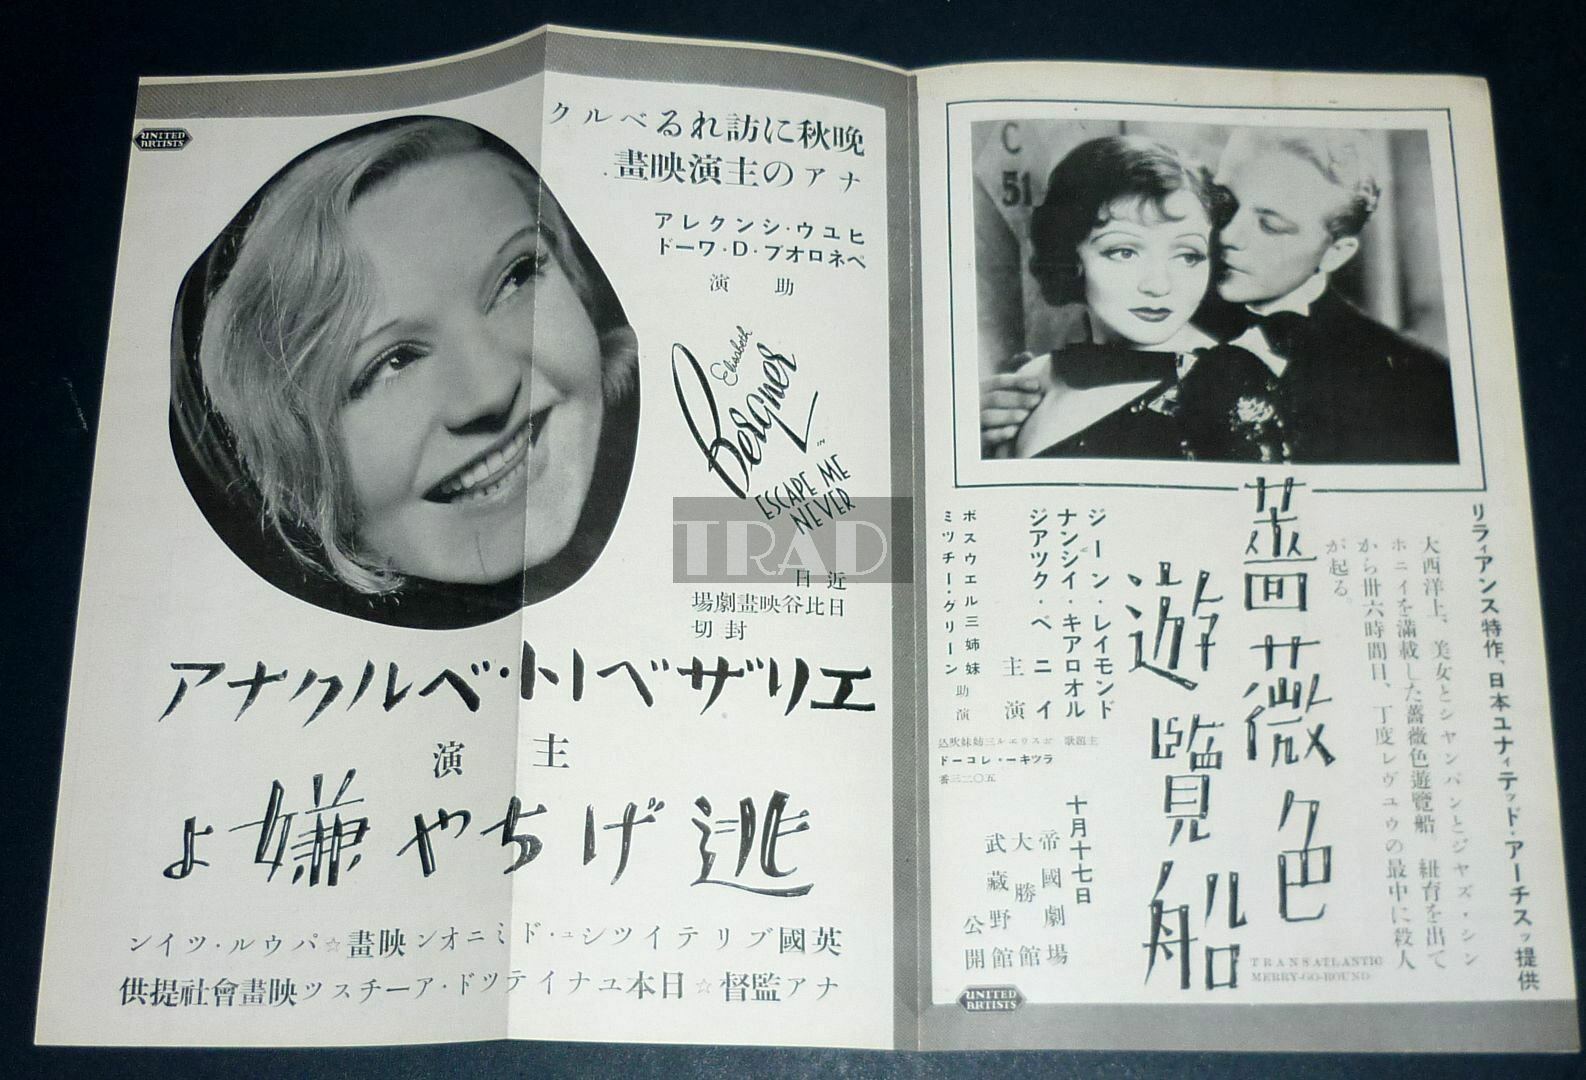 晩秋に訪れるベルク
ナアの主演映畫.
ヒユウ・シンクレア
ペネロオプ・D・ワード
助演
Elisabeth
Bergner
IN
ESCAPE ME
NEVER
近日
日比谷映畫劇場
封切
エリザベト・ベルクナア
主演
逃げちや嫌よ
英國ブリテイツシュ・ドミニオン映畫☆パウル・ツイン
ナア監督☆日本ユナイテツド・アーチスツ映畫會社提供
UNITED
ARTISTS
C
51
リライアンス特作、日本ユナイテッド・アーチスッ提供
大西洋上、美女とシヤンパンとジヤズ・シン
ホニイを滿載した薔薇色遊覽船。紐育を出て
から卅六時間目、丁度レヴュウの最中に殺人
が起る。
薔薇色
遊覽船
TRANSATLANTIC
MERRY-GO-ROUND
ジーン・レイモンド
ナンシイ・キアロオル
ジアツク・ベニイ
主演
ボスウエル三姉妹
ミツチー・グリーン
助演
主題歌 ボスウエル三姉妹吹込
ラツキー・レコード
五〇二三番
十月十七日
帝國劇場
大勝館
武藏野館
公開
UNITED
ARTISTS
TRAD